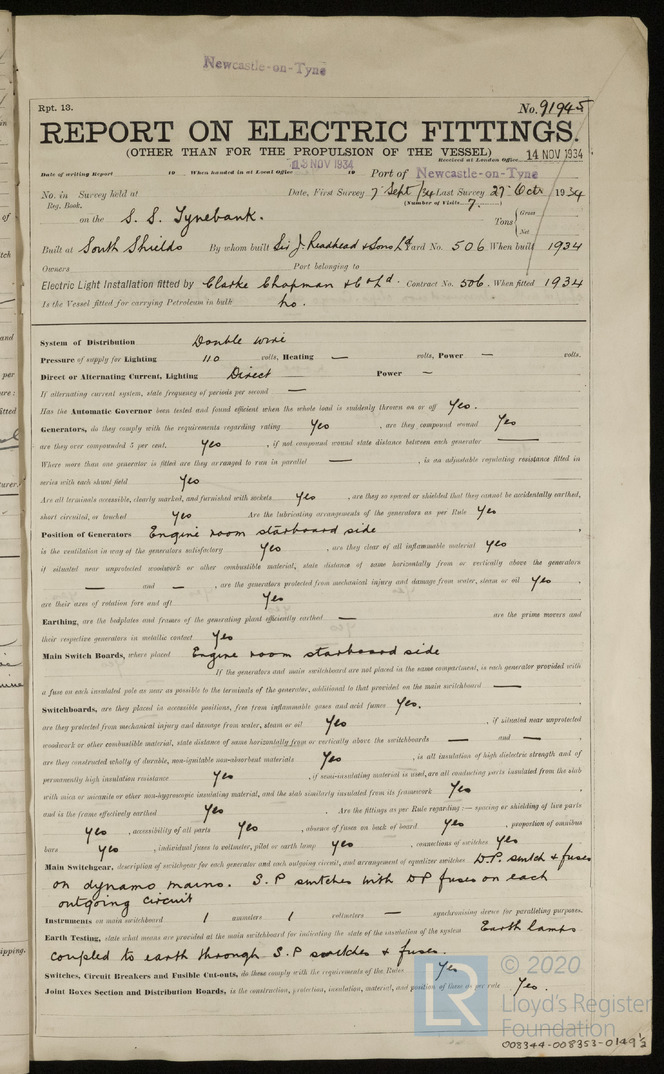 Newcastle-on-Tyne
Rpt. 13. No. 91945
REPORT ON ELECTRIC FITTINGS.
(OTHER THAN FOR THE PROPULSION OF THE VESSEL)
Received at London Office 14 NOV 1934
Date of writing Report 19 When handed in at Local Office 13 NOV 1934 19 Port of Newcastle-on-Tyne
No. in Survey held at Date, First Survey 7 Sept /34 Last Survey 27 Oct 1934
Reg. Book. (Number of Visits 7.)
on the S. S. Tynebank. Tons { Gross
Net
Built at South Shields By whom built Sir J. Readhead & Sons Ld Yard No. 506. When built 1934
Owners Port belonging to
Electric Light Installation fitted by Clarke Chapman & Co Ld. Contract No. 506. When fitted 1934
Is the Vessel fitted for carrying Petroleum in bulk no.
System of Distribution Double wire
Pressure of supply for Lighting 110 volts, Heating — volts, Power — volts.
Direct or Alternating Current, Lighting Direct Power —
If alternating current system, state frequency of periods per second —
Has the Automatic Governor been tested and found efficient when the whole load is suddenly thrown on or off Yes.
Generators, do they comply with the requirements regarding rating Yes , are they compound wound Yes
are they over compounded 5 per cent. Yes , if not compound wound state distance between each generator —
Where more than one generator is fitted are they arranged to run in parallel — , is an adjustable regulating resistance fitted in
series with each shunt field Yes
Are all terminals accessible, clearly marked, and furnished with sockets Yes , are they so spaced or shielded that they cannot be accidentally earthed,
short circuited, or touched Yes Are the lubricating arrangements of the generators as per Rule Yes
Position of Generators Engine room starboard side ,
is the ventilation in way of the generators satisfactory Yes , are they clear of all inflammable material Yes
if situated near unprotected woodwork or other combustible material, state distance of same horizontally from or vertically above the generators
— and — , are the generators protected from mechanical injury and damage from water, steam or oil Yes ,
are their axes of rotation fore and aft Yes
Earthing, are the bedplates and frames of the generating plant efficiently earthed — are the prime movers and
their respective generators in metallic contact Yes
Main Switch Boards, where placed Engine room starboard side
If the generators and main switchboard are not placed in the same compartment, is each generator provided with
a fuse on each insulated pole as near as possible to the terminals of the generator, additional to that provided on the main switchboard —
Switchboards, are they placed in accessible positions, free from inflammable gases and acid fumes Yes.
are they protected from mechanical injury and damage from water, steam or oil Yes , if situated near unprotected
woodwork or other combustible material, state distance of same horizontally from or vertically above the switchboards — and — ,
are they constructed wholly of durable, non-ignitable non-absorbent materials Yes , is all insulation of high dielectric strength and of
permanently high insulation resistance Yes , if semi-insulating material is used, are all conducting parts insulated from the slab
with mica or micanite or other non-hygroscopic insulating material, and the slab similarly insulated from its framework Yes ,
and is the frame effectively earthed Yes . Are the fittings as per Rule regarding :— spacing or shielding of live parts
Yes , accessibility of all parts Yes , absence of fuses on back of board Yes , proportion of omnibus
bars Yes , individual fuses to voltmeter, pilot or earth lamp Yes , connections of switches Yes
Main Switchgear, description of switchgear for each generator and each outgoing circuit, and arrangement of equalizer switches D.P. switch & fuses
on dynamo mains. S.P switches with DP fuses on each
outgoing circuit
Instruments on main switchboard 1 ammeters 1 voltmeters — synchronising device for paralleling purposes.
Earth Testing, state what means are provided at the main switchboard for indicating the state of the insulation of the system Earth lamps
coupled to earth through S.P switches & fuses.
Switches, Circuit Breakers and Fusible Cut-outs, do these comply with the requirements of the Rules Yes
Joint Boxes Section and Distribution Boards, is the construction, protection, insulation, material, and position of these as per rule Yes.
LR
© 2020
Lloyd's Register
Foundation
008344-008353-0149½